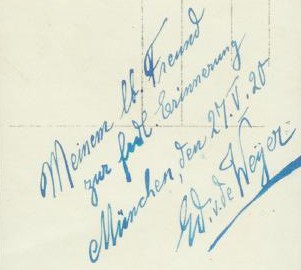 Meinem lb. Freund
zur frdl. Erinnerung
München, den 27.V.20
Ed. v. de Weyer